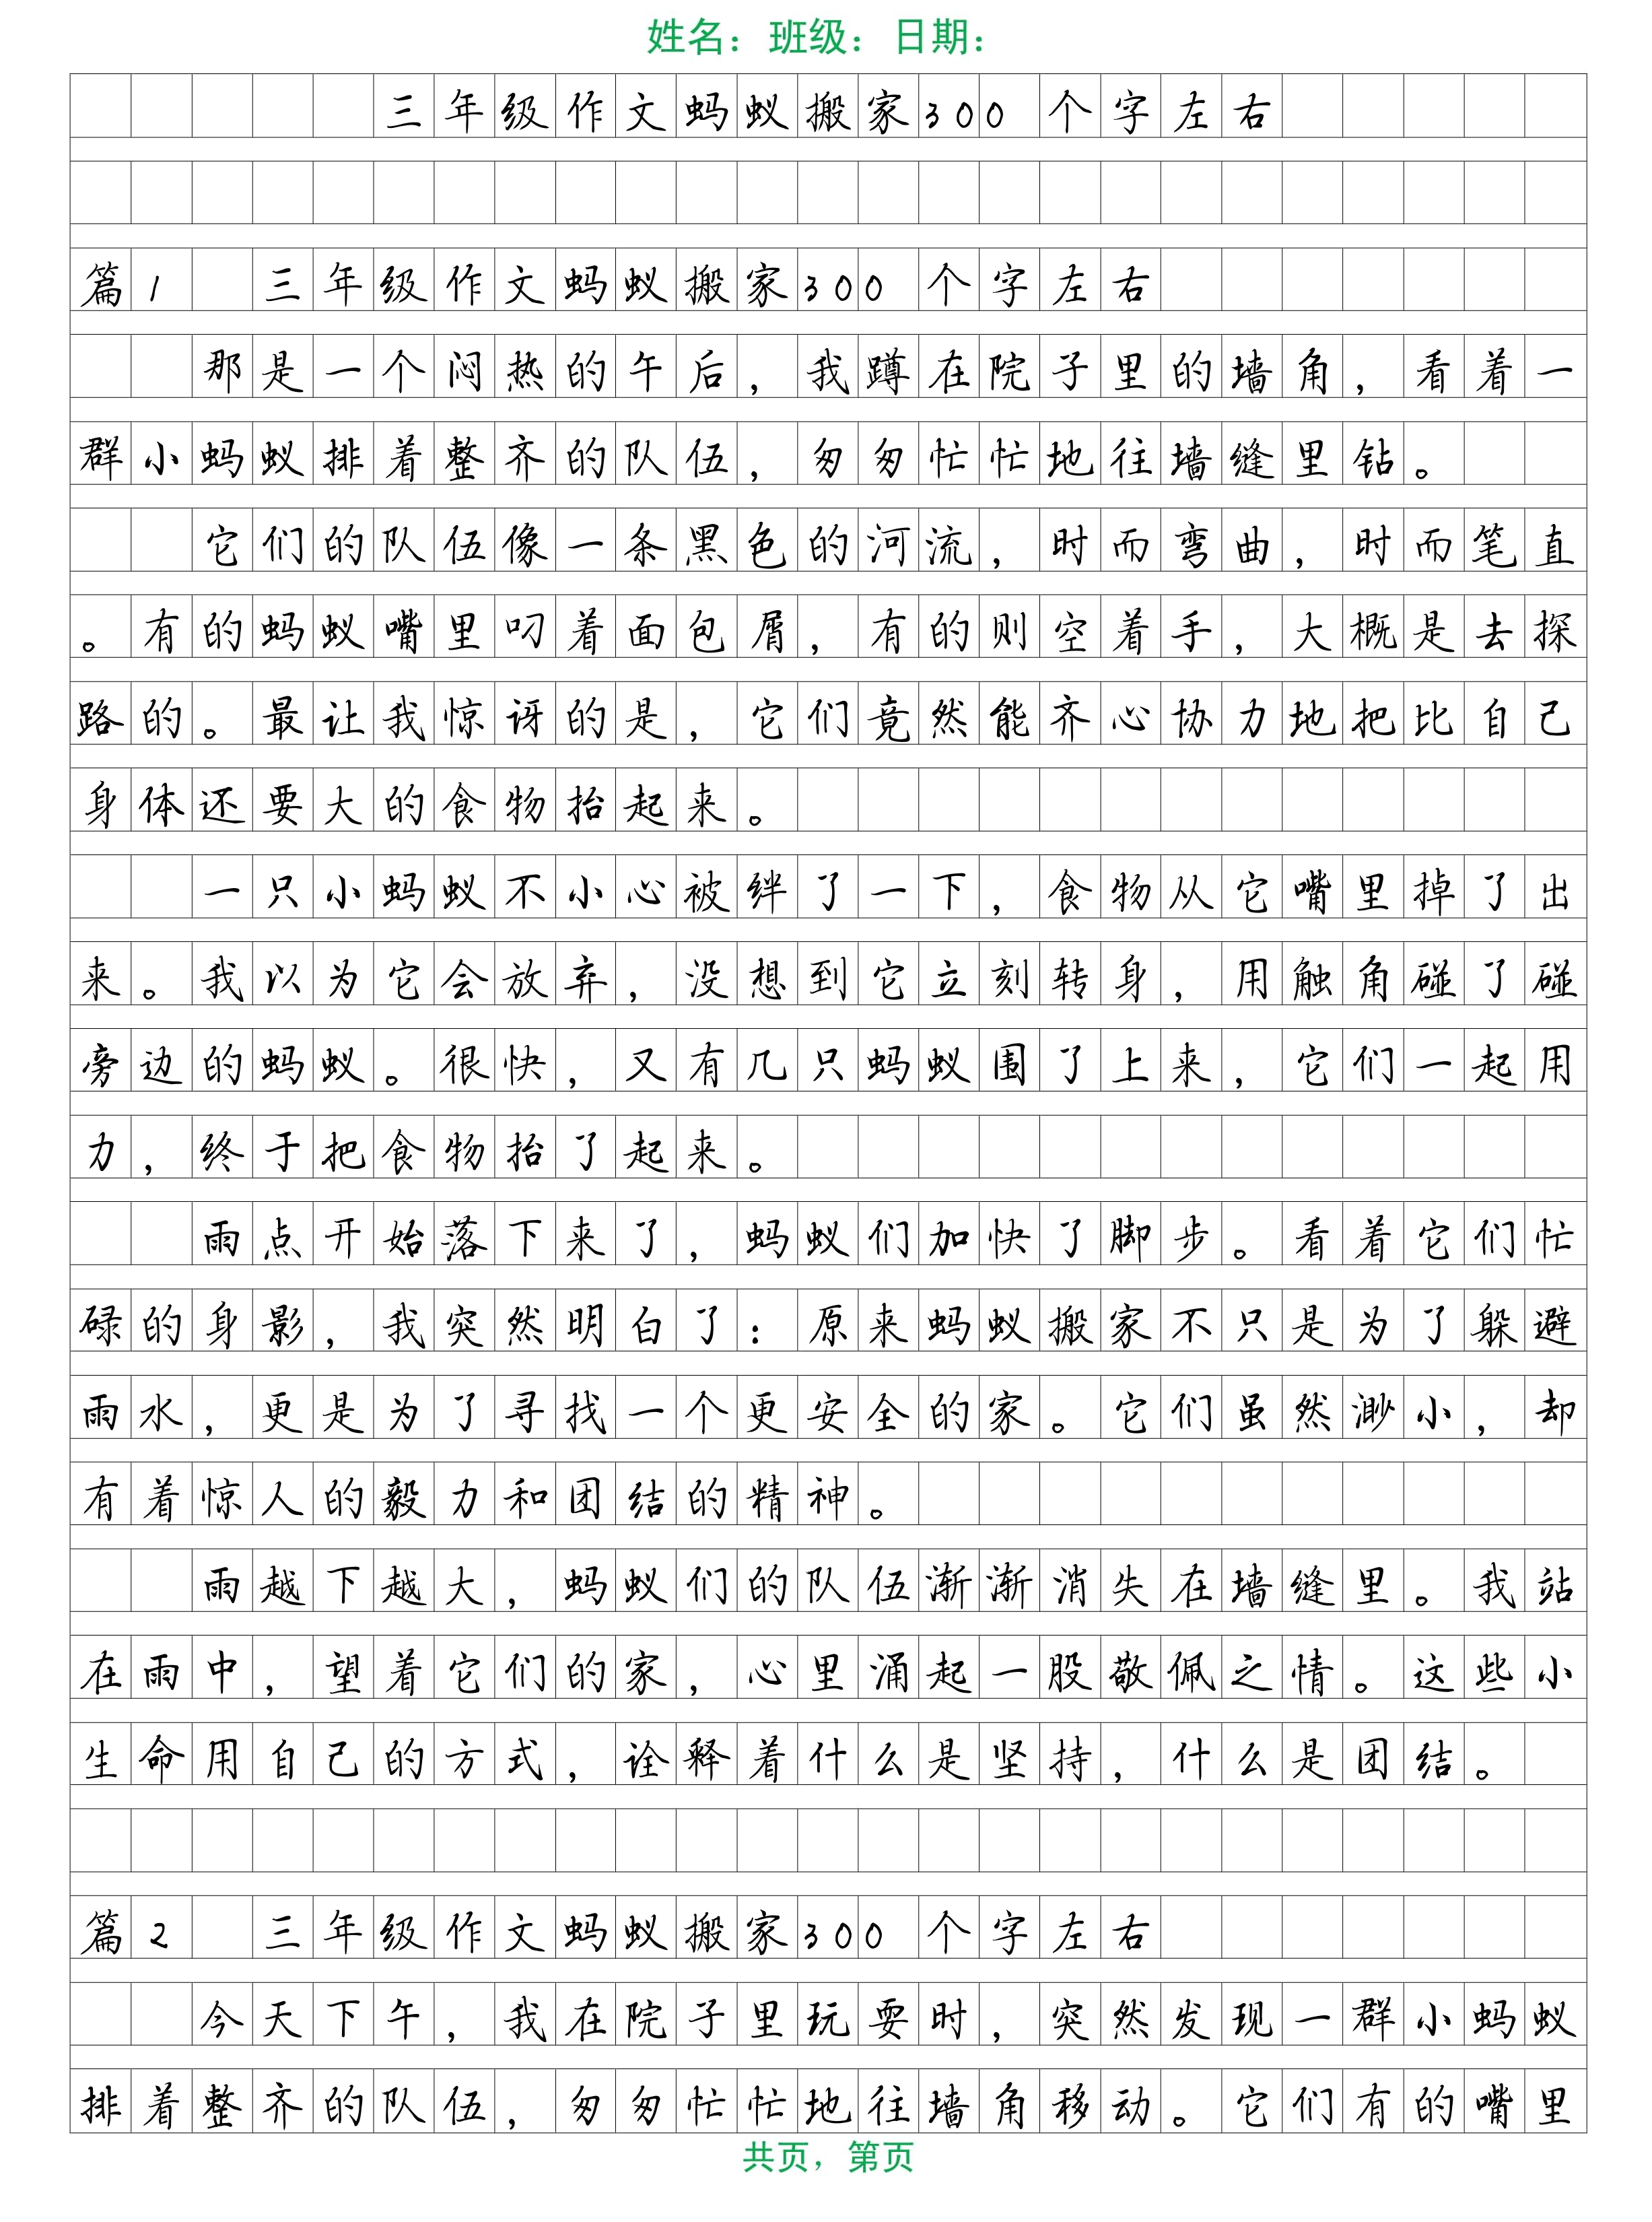 姓名：班级：日期：
三年级作文蚂蚁搬家300个字左右
篇1 三年级作文蚂蚁搬家300个字左右
那是一个闷热的午后，我蹲在院子里的墙角，看着一
群小蚂蚁排着整齐的队伍，匆匆忙忙地往墙缝里钻。
它们的队伍像一条黑色的河流，时而弯曲，时而笔直
。有的蚂蚁嘴里叼着面包屑，有的则空着手，大概是去探
路的。最让我惊讶的是，它们竟然能齐心协力地把比自己
身体还要大的食物抬起来。
一只小蚂蚁不小心被绊了一下，食物从它嘴里掉了出
来。我以为它会放弃，没想到它立刻转身，用触角碰了碰
旁边的蚂蚁。很快，又有几只蚂蚁围了上来，它们一起用
力，终于把食物抬了起来。
雨点开始落下来了，蚂蚁们加快了脚步。看着它们忙
碌的身影，我突然明白了：原来蚂蚁搬家不只是为了躲避
雨水，更是为了寻找一个更安全的家。它们虽然渺小，却
有着惊人的毅力和团结的精神。
雨越下越大，蚂蚁们的队伍渐渐消失在墙缝里。我站
在雨中，望着它们的家，心里涌起一股敬佩之情。这些小
生命用自己的方式，诠释着什么是坚持，什么是团结。
篇2 三年级作文蚂蚁搬家300个字左右
今天下午，我在院子里玩耍时，突然发现一群小蚂蚁
排着整齐的队伍，匆匆忙忙地往墙角移动。它们有的嘴里
共页，第页